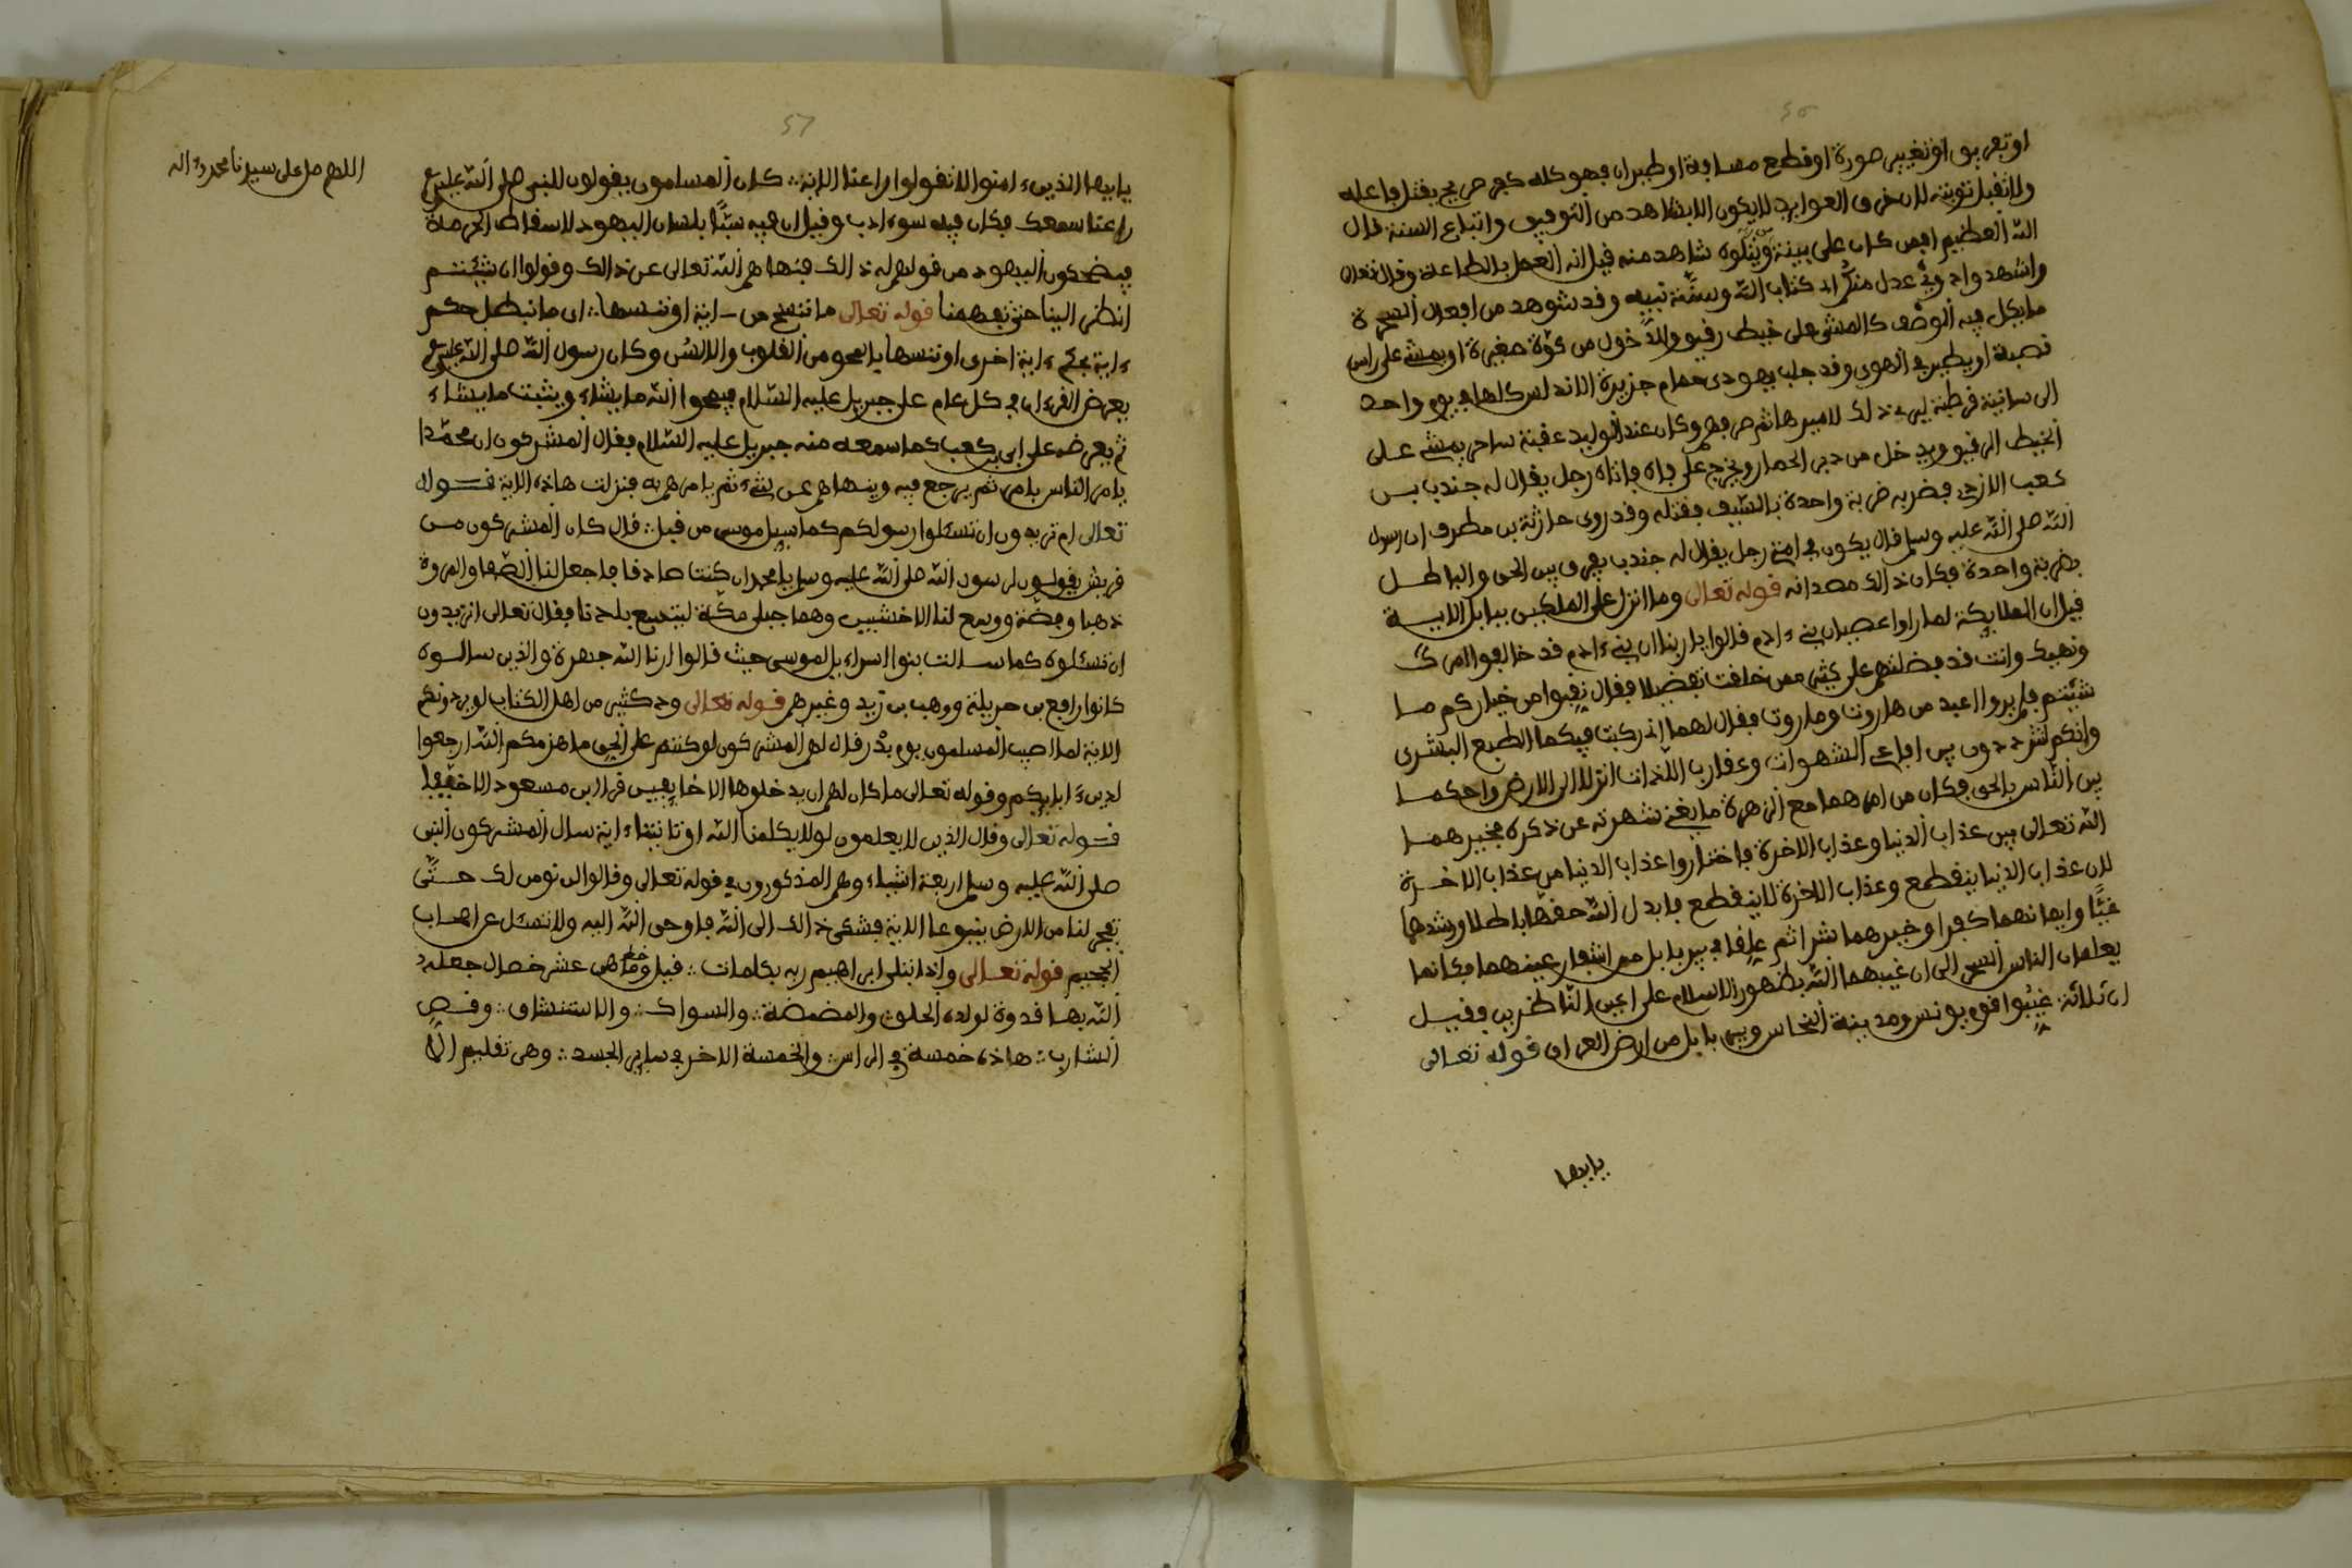 او تعريق او تغيير صورة او قطع مسافة او طيران فهو كله كفر صريح يقتل فاعله
ولا تقبل توبته لان خرق العوايد لا يكون الا بشاهد من التوفيق واتباع السنة قال
الله العظيم افمن كان على بينة ويتلوه شاهد منه قيل انه العمل بالطاعة وقال تعالى
واشهدوا ذوي عدل منكم اد كتاب الله وسنة نبيه وقد شوهد من افعال السحرة
ما يكل فيه الوصف كالمشي على خيط رقيق والدخول من كوة صغيرة او يمشي على راس
قصبة او يطير في الهوى وقد جلب يهودي حمام جزيرة الاندلس كلها في يوم واحد
الى سانية قرطبة ليرى ذلك لاميرها ثم صرفهم وكان عند الوليد عقبة ساحر يمشي على
الخيط الرقيق ويدخل من دبر الحمار ويخرج على فاه فاتاه رجل يقال له جندب بن
كعب الازدي فضربه ضربة واحدة بالسيف فقتله وقد روى حارثة بن مطرف ان رسول
الله صلى الله عليه وسلم قال يكون في امتي رجل يقال له جندب يفرق بين الحق والباطل
بضربة واحدة فكان ذالك مصدانه قوله تعالى وما انزل على الملكين ببابل الاية
قيل ان الملايكة لما راوا عصيان بني ءادم قالوا يا ربنا ان بني ءادم قد خالفوا امرك
ونهيك وانت قد فضلتهم على كثير ممن خلقت تفضيلا فقال نقبوا من خياركم ما
شيتم فلم يروا اعبد من هاروت وماروت فقال لهما اني ركبت فيكما الطبع البشري
وانكم تترددون بين افاعي الشهوات وعقارب اللذات انزلا الى الارض واحكما
بين الناس بالحق فكان من امرهما مع الزهرة ما يغني شهرته عن ذكره فخيرهما
الله تعالى بين عذاب الدنيا وعذاب الاخرة فاختاروا عذاب الدنيا من عذاب الاخرة
لان عذاب الدنيا ينقطع وعذاب الاخرة لا ينقطع فابدل الله حقهما باطلا ورشدهما
غيا وايمانهما كفرا وخيرهما شرا ثم علقا في بير بابل من اشفار عينهما فكانما
يعلمان الناس السحر الى ان غيبهما الله بظهور الاسلام على اعين الناظرين وقيل
ان ثلاثة غيبوا قوم يونس ومدينة النحاس وبير بابل من ارض العراق قوله تعالى
يا ايها
57
اللهم صل على سيدنا محمد وءاله
يا ايها الذين ءامنوا لا تقولوا راعنا الاية كان المسلمون يقولون للنبي صلى الله عليه
راعنا سمعك فكان فيه سوء ادب وقيل ان فيه سبا بلسان اليهود لاسقاط الحرمة
فيضحكون اليهود من قولهم له ذالك فنهاهم الله تعالى عن ذالك وقولوا ان شيتم
انظر الينا حتى تفهمنا قوله تعالى ما ننسخ من ءاية او ننسها ان ما نبطل حكم
ءاية بحكم ءاية اخرى او ننسها يا نمحو من القلوب والالسن وكان رسول الله صلى الله عليه
يعرض القرءان في كل عام على جبريل عليه السلام فيمحوا الله ما يشاء ويثبت ما يشاء
ثم يعرضه على ابي بن كعب كما سمعه منه جبريل عليه السلام فقال المشركون ان محمدا
يامر الناس بامر ثم يرجع فيه وينهاهم عن شيء ثم يامرهم به فنزلت هاذه الاية قوله
تعالى ام تريدون ان تسئلوا رسولكم كما سيل موسى من قبل قال كان المشركون من
قريش يقولون لرسول الله صلى الله عليه وسلم يا محمد ان كنت صادقا فاجعل لنا الصفا والمروة
ذهبا وفضة ووسع لنا الاخشبين وهما جبلي مكة ليتسع بلدنا فقال تعالى اتريدون
ان تسئلوه كما سالت بنوا اسراءيل لموسى حيث قالوا ارنا الله جهرة والذين سالوه
كانوا رافع بن حريملة ووهب بن زيد وغيرهم قوله تعالى ود كثير من اهل الكتاب لو يردونكم
الاية لما اصيب المسلمون يوم بدر قال لهم المشركون لو كنتم على الحق ما هزمكم الله ارجعوا
لدين ءابايكم وقوله تعالى ما كان لهم ان يدخلوها الا خايفين قرا ابن مسعود الا خيفا
قوله تعالى وقال الذين لا يعلمون لولا يكلمنا الله او تاتينا ءاية سال المشركون النبي
صلى الله عليه وسلم اربعة اشياء وهم المذكورون في قوله تعالى وقالوا لن نومن لك حتى
تفجر لنا من الارض ينبوعا الاية فشكى ذالك الى الله فاوحى الله اليه ولا تسئل عن اصحاب
الجحيم قوله تعالى واذ ابتلى ابراهيم ربه بكلمات قيل وهي عشر خصال جعله
الله بها قدوة لولده الحلق والمضمضة والسواك والاستنشاق وقص
الشارب هاذه خمسة في الراس والخمسة الاخر في ساير الجسد وهي تقليم الا